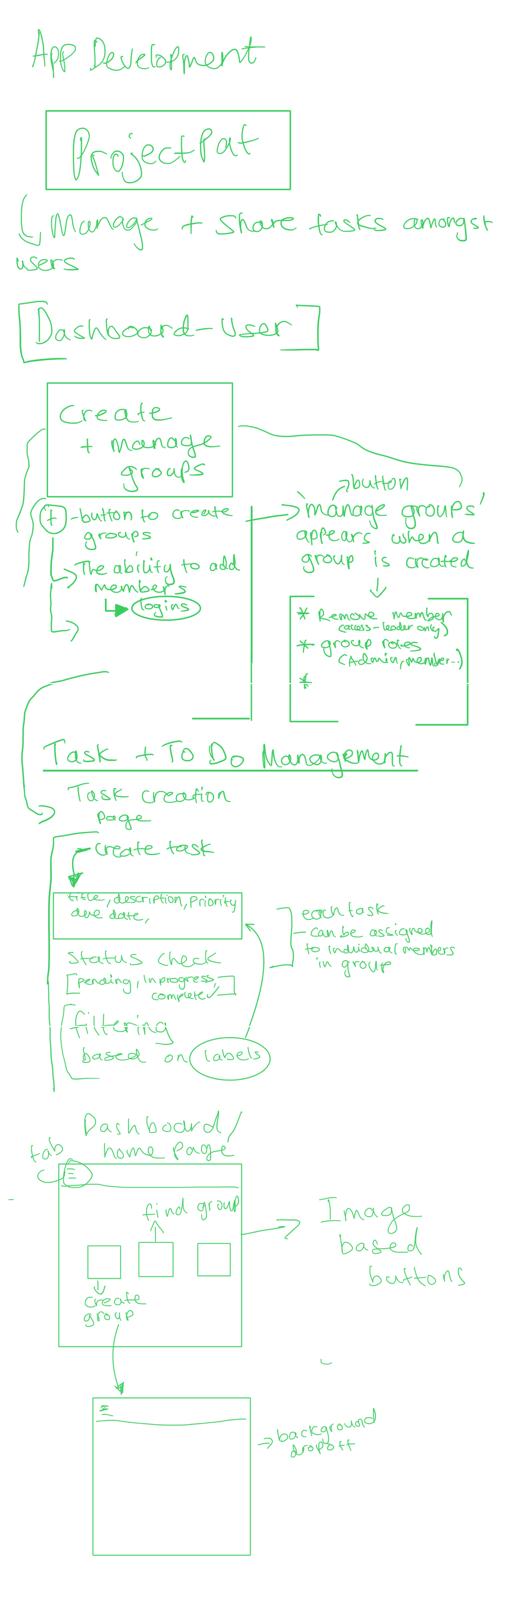 App Development
ProjectPat
Manage + Share tasks amongst
users
Dashboard-User
Create
+ manage
groups
+ -button to create
groups
The ability to add
members
logins
button
'manage groups'
appears when a
group is created
* Remove member
(access-leader only)
* group roles
(Admin, member..)
*
Task + To Do Management
Task creation
page
create task
title, description, Priority
due date,
status check
[pending, In progress,
complete✓]
filtering
based on labels
each task
- can be assigned
to individual members
in group
Dashboard/
home page
tab
find group
create
group
Image
based
buttons
background
dropoff